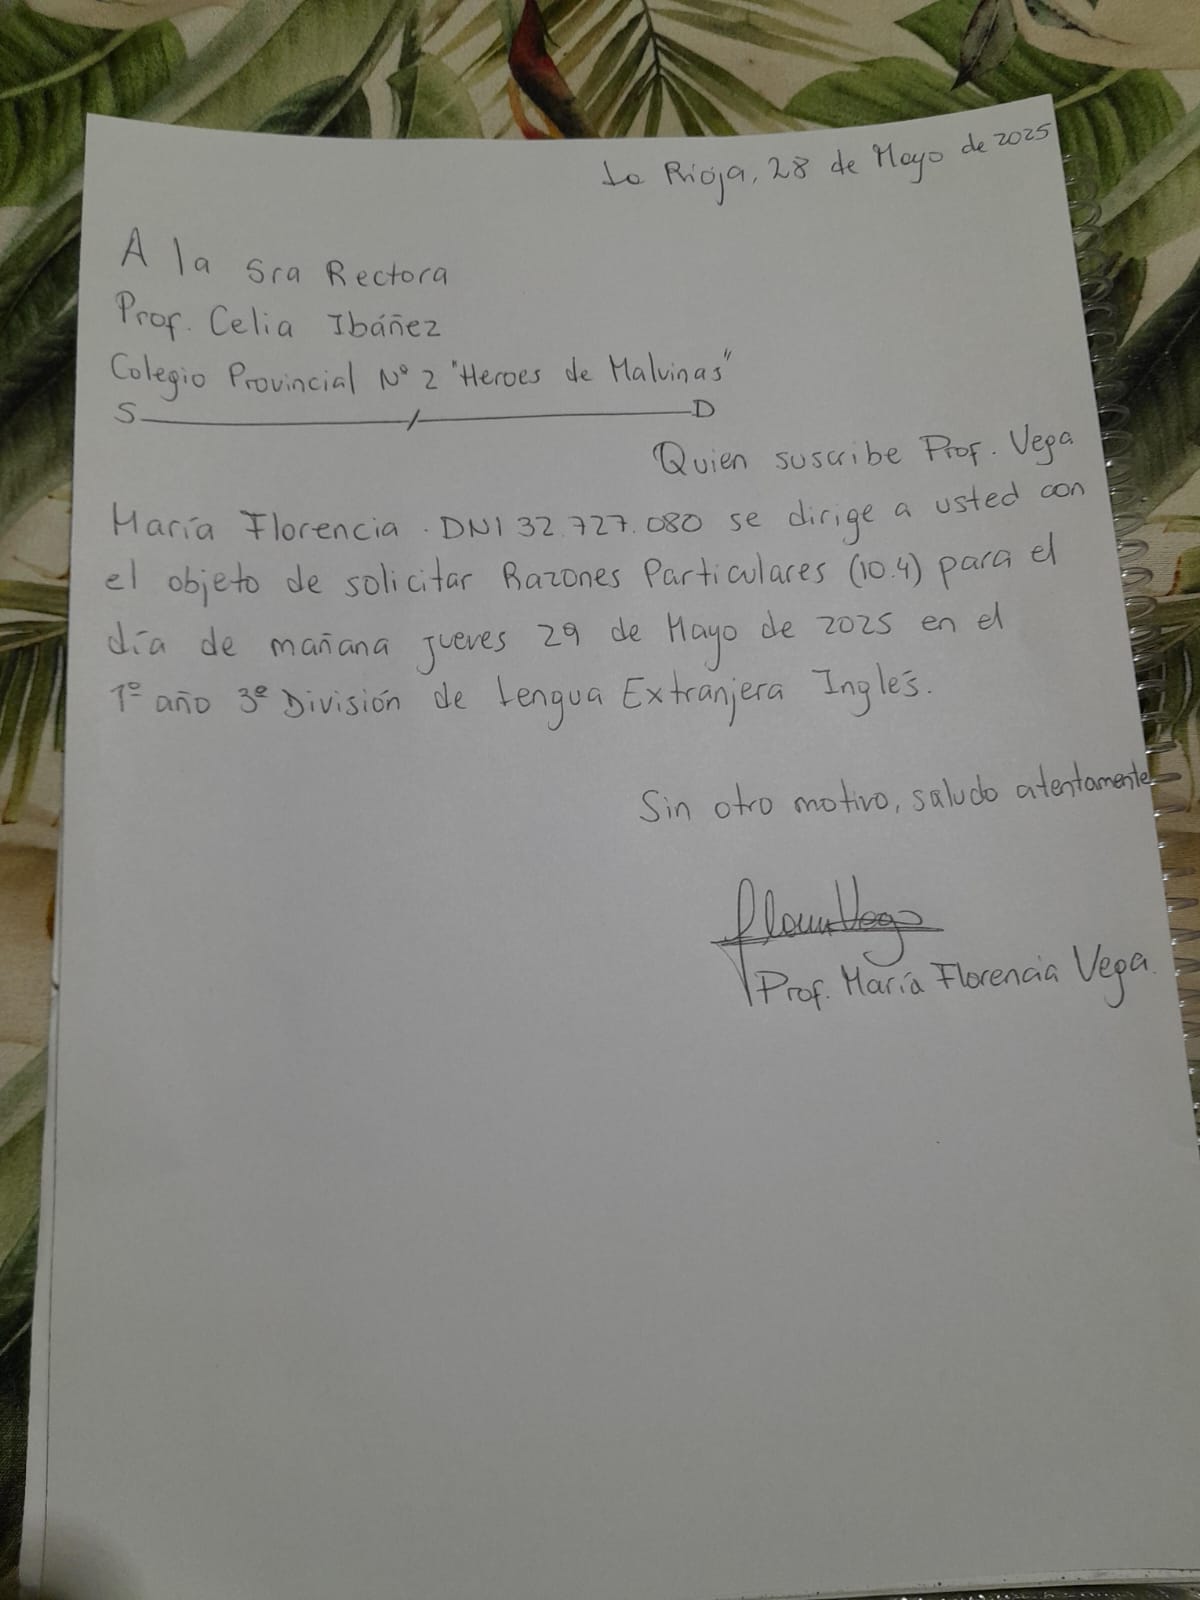 La Rioja, 28 de Mayo de 2025
A la Sra Rectora
Prof. Celia Ibáñez
Colegio Provincial N° 2 "Heroes de Malvinas"
S / D
Quien suscribe Prof. Vega
María Florencia. DNI 32.727.080 se dirige a usted con
el objeto de solicitar Razones Particulares (10.4) para el
día de mañana jueves 29 de Mayo de 2025 en el
1° año 3° División de Lengua Extranjera Inglés.
Sin otro motivo, saludo atentamente
Flor Vega
Prof. María Florencia Vega.